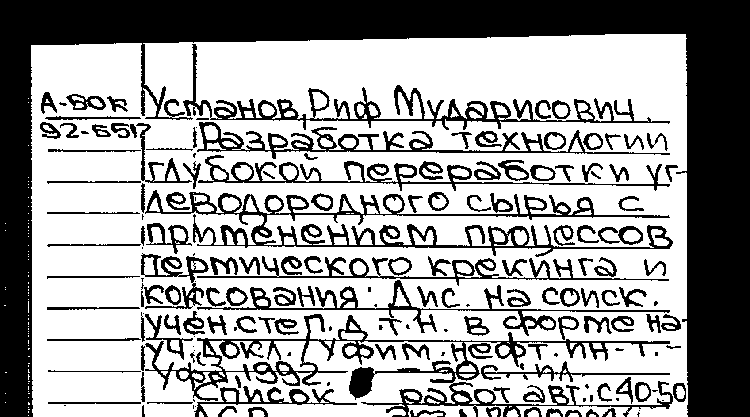 А-БОК Установ, Риф Мударисович.
92-6517 Разработка технологии
глубокой переработки уг-
леводородного сырья с
применением процессов
термического крекинга и
коксования: Дис. на соиск.
учен. степ. д.т.н. в форме на-
уч. докл. / Уфим. нефт. ин-т. -
Уфа, 1992. - 50с.: ил.
Список работ авт.: с 40-50